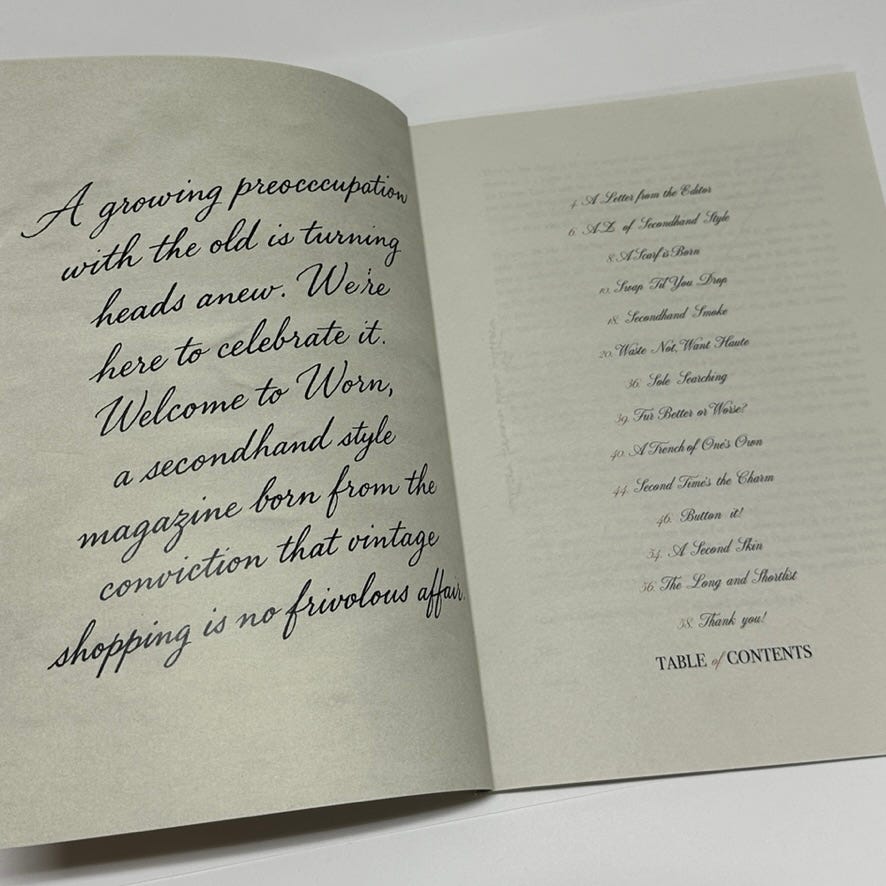 A growing preocccupation
with the old is turning
heads anew. We're
here to celebrate it.
Welcome to Worn,
a secondhand style
magazine born from the
conviction that vintage
shopping is no frivolous affair.
4. A Letter from the Editor
6. A-Z of Secondhand Style
8. A Scarf is Born
10. Swap Til' You Drop
18. Secondhand Smoke
20. Waste Not, Want Haute
36. Sole Searching
39. Fur Better or Worse?
40. A Trench of One's Own
44. Second Time's the Charm
46. Button it!
54. A Second Skin
56. The Long and Shortlist
58. Thank you!
TABLE of CONTENTS